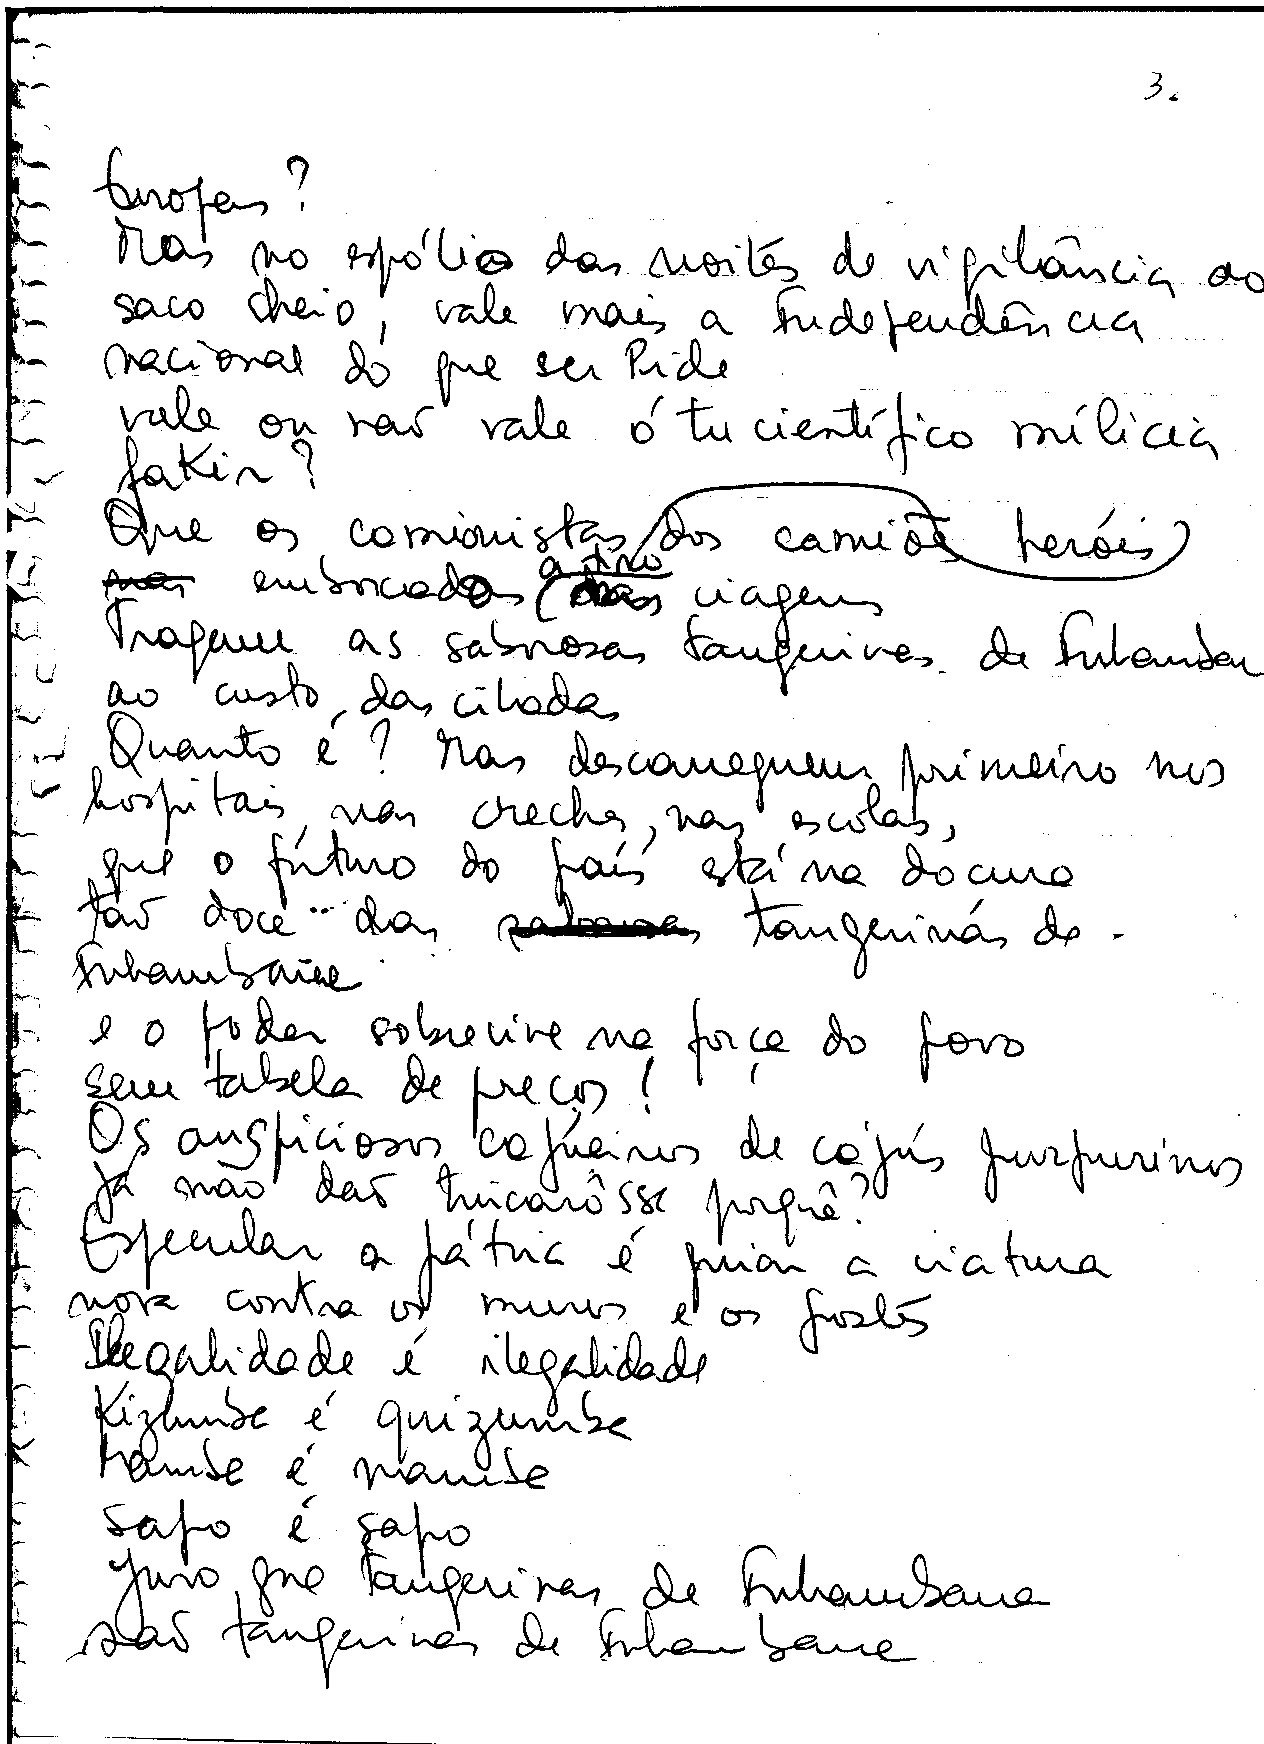 3.
Europeus?
Mas no espólio das noites de vigilância ao
saco cheio, vale mais a Independência
nacional do que ser Pide
vale ou não vale ó tu científico milícia
fakir?
Que os camionistas dos camiões heróis
emboscados a tiro viagens
Tragam as saborosas tangerinas de Inhamban
ao custo das ciladas
Quanto é? Mas descarreguem primeiro nos
hospitais, nas creches, nas escolas,
que o futuro do país está na doçura
tão doce das tangerinas de
Inhambane
e o poder sobrevive na força do povo
sem tabela de preços!
Os auspiciosos cajueiros de cajús purpurinos
já não dão porquê?
Especular a pátria é puxar a viatura
nova contra os muros e os postes
Ilegalidade é ilegalidade
Kizumba é quizumba
Mamba é mamba
Sapo é sapo
Juro que tangerinas de Inhambane
são tangerinas de Inhambane